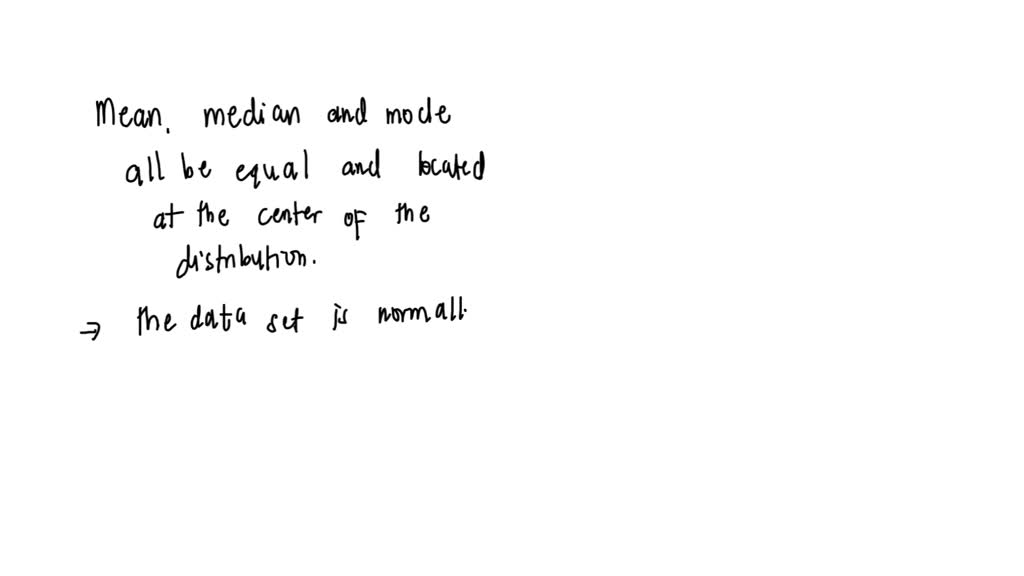 Mean, median and mode
all be equal and located
at the center of the
distribution.
⇒ the data set is normall